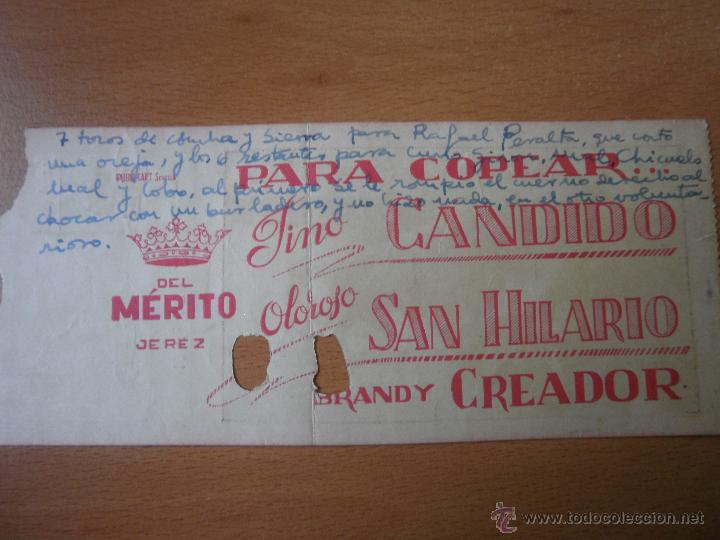 7 toros de Concha y Sierra para Rafael Peralta, que cortó
una oreja, y los 6 restantes para Curro Girón, Chicuelo
mal y lobo, al primero se le rompió el cuerno derecho al
chocar con un burladero, y no hizo nada, en el otro volunta-
rioso.
PARA COPEAR...
Fino CANDIDO
DEL
MÉRITO
JEREZ
Oloroso SAN HILARIO
BRANDY CREADOR
© www.todocoleccion.net